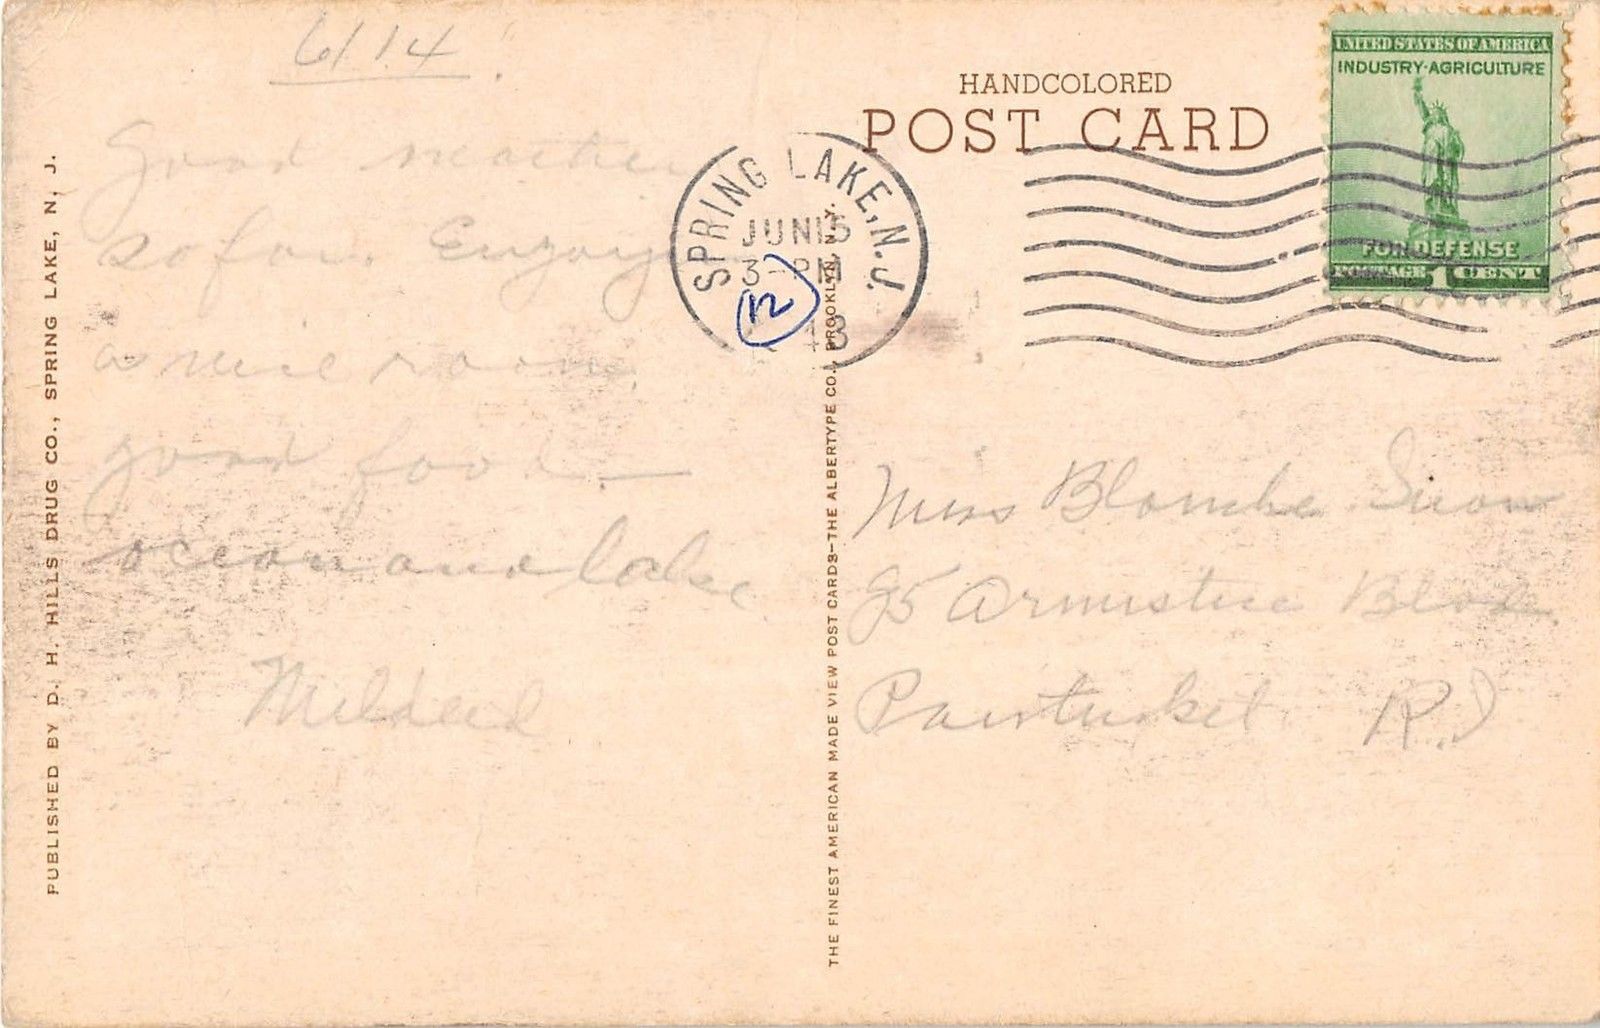 6/14.
Good weather
so far. Enjoy
a nice room,
good food—
ocean and lake.
Mildred
PUBLISHED BY D. H. HILLS DRUG CO., SPRING LAKE, N. J.
HANDCOLORED
POST CARD
SPRING LAKE, N.J.
JUN 15
3-PM
12
THE FINEST AMERICAN MADE VIEW POST CARDS—THE ALBERTYPE CO., BROOKLYN, N. Y.
UNITED STATES OF AMERICA
INDUSTRY·AGRICULTURE
FOR DEFENSE
POSTAGE 1 CENT
Miss Blanche Snow
Armistice Blvd.
Pawtucket R.I